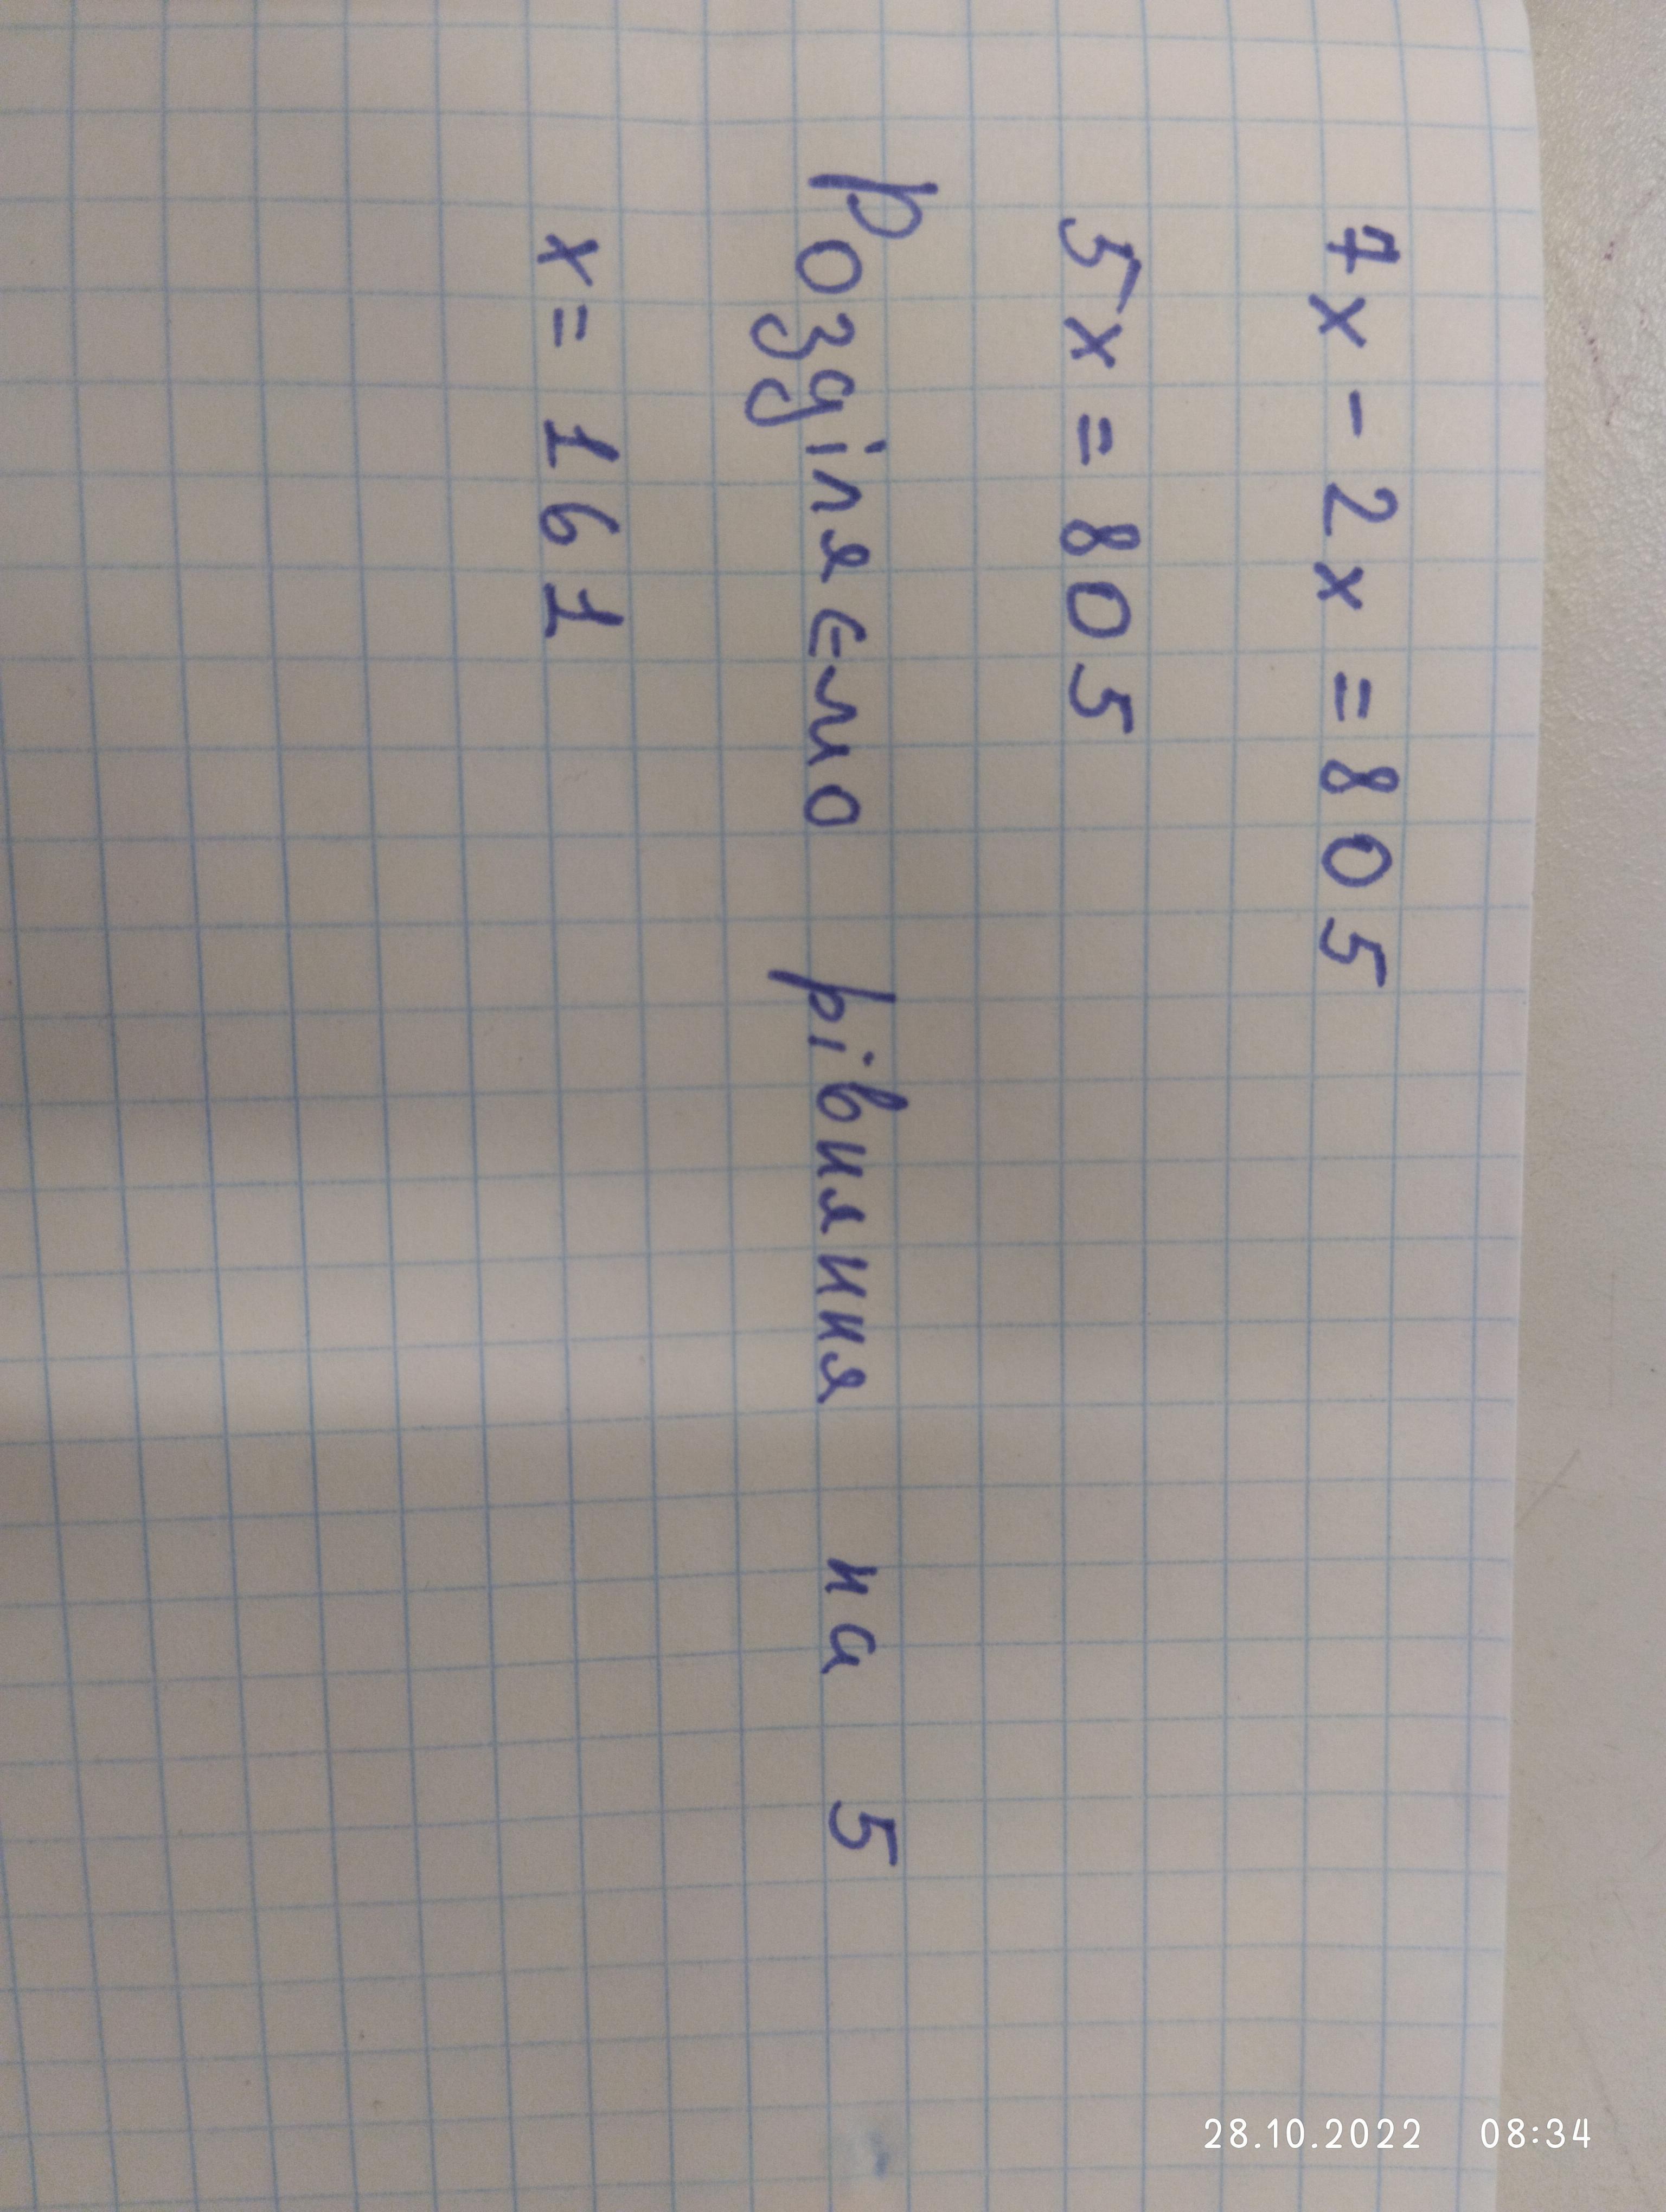 7x - 2x = 805
5x = 805
Розділяємо рівняння на 5
x = 161
28.10.2022 08:34